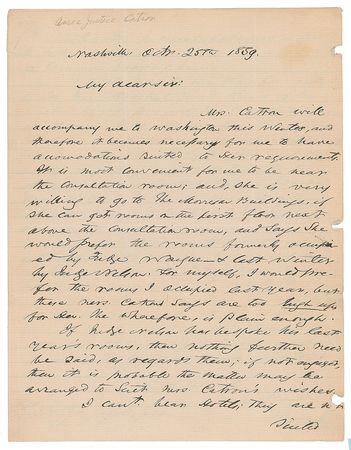 Asso Justice Catron
Nashville Octr. 25th 1859.
My dear sir:
Mrs. Catron will
accompany me to Washington this Winter, and
therefore it becomes necessary for me to have
accomodations suited to her requirements.
It is most convenient for me to be near
the Consultation room; and, she is very
willing to go to The Morrison Buildings, if
she can get rooms on the first floor next
above the Consultation room, and says She
would prefer the rooms formerly occupi-
ed by Judge Wayne & last Winter
by Judge Nelson. For myself, I would pre-
fer the rooms I occupied last year, but
these Mrs Catron says are too high up
for her. The wherefore, is plain enough.
If Judge Nelson has bespoke his last
year's rooms, then nothing further need
be said, as regards them; if not engaged,
then it is probable the matter may be
arranged to suit Mrs. Catron's wishes.
I can't bear Hotels; they are
suited